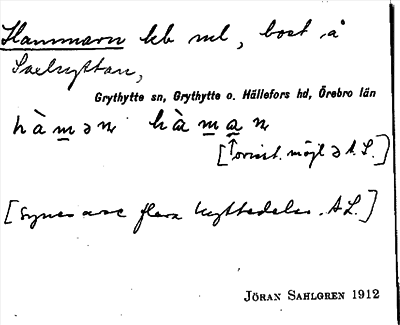 Hammarn kb ml, bost å
Saxhyttan,
Grythytte sn, Grythytte o. Hällefors hd, Örebro län
hàmən hàman
[↑ortist. möjl ə A. S.]
[Synes avse flera hyttedelar. A L.]
JÖRAN SAHLGREN 1912